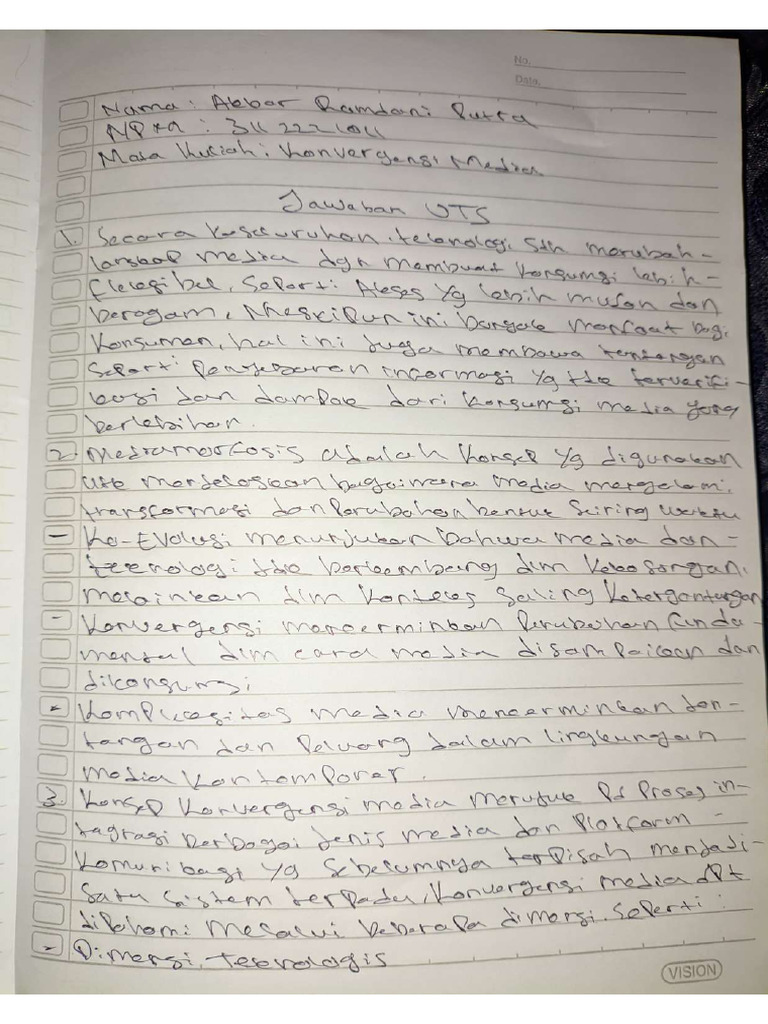 No.
Date.
Nama : Akbar Ramdani Putra
NPM : 3112221011
Mata Kuliah : Konvergensi Media
Jawaban UTS
1. Secara keseluruhan, teknologi sdh merubah -
lanskap media dgn membuat konsumsi lebih -
fleksibel, seperti Akses yg lebih mudah dan
beragam, Meskipun ini banyak manfaat bagi
konsumen, hal ini juga membawa tantangan
seperti penyebaran informasi yg tdk terverifi -
kasi dan dampak dari konsumsi media yang
berlebihan.
2. Mediamorfosis adalah konsep yg digunakan
utk menjelaskan bagaimana media mengalami
transformasi dan perubahan bentuk seiring waktu
- Ko-Evolusi menunjukan bahwa media dan -
teknologi tdk berkembang dlm kekosongan,
melainkan dlm konteks saling ketergantungan
- Konvergensi mencerminkan perubahan funda -
mental dlm cara media disampaikan dan
dikonsumsi
- Kompleksitas media mencerminkan tan -
tangan dan peluang dalam lingkungan
media kontemporer.
3. Konsep Konvergensi media merujuk pd proses in -
tegrasi berbagai jenis media dan platform -
komunikasi yg sebelumnya terpisah menjadi -
satu sistem terpadu, konvergensi media dpt
dipahami melalui beberapa dimensi seperti :
- Dimensi teknologis
VISION